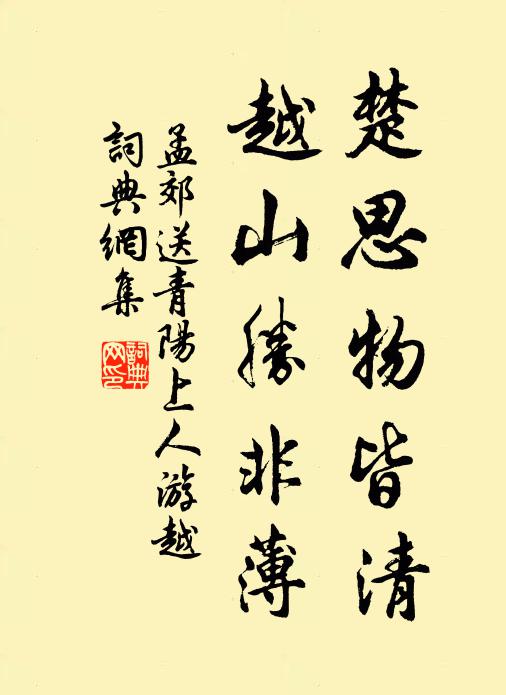 楚思物皆清
越山勝非薄
孟郊送青陽上人游越
詞典網集
詞典
网印